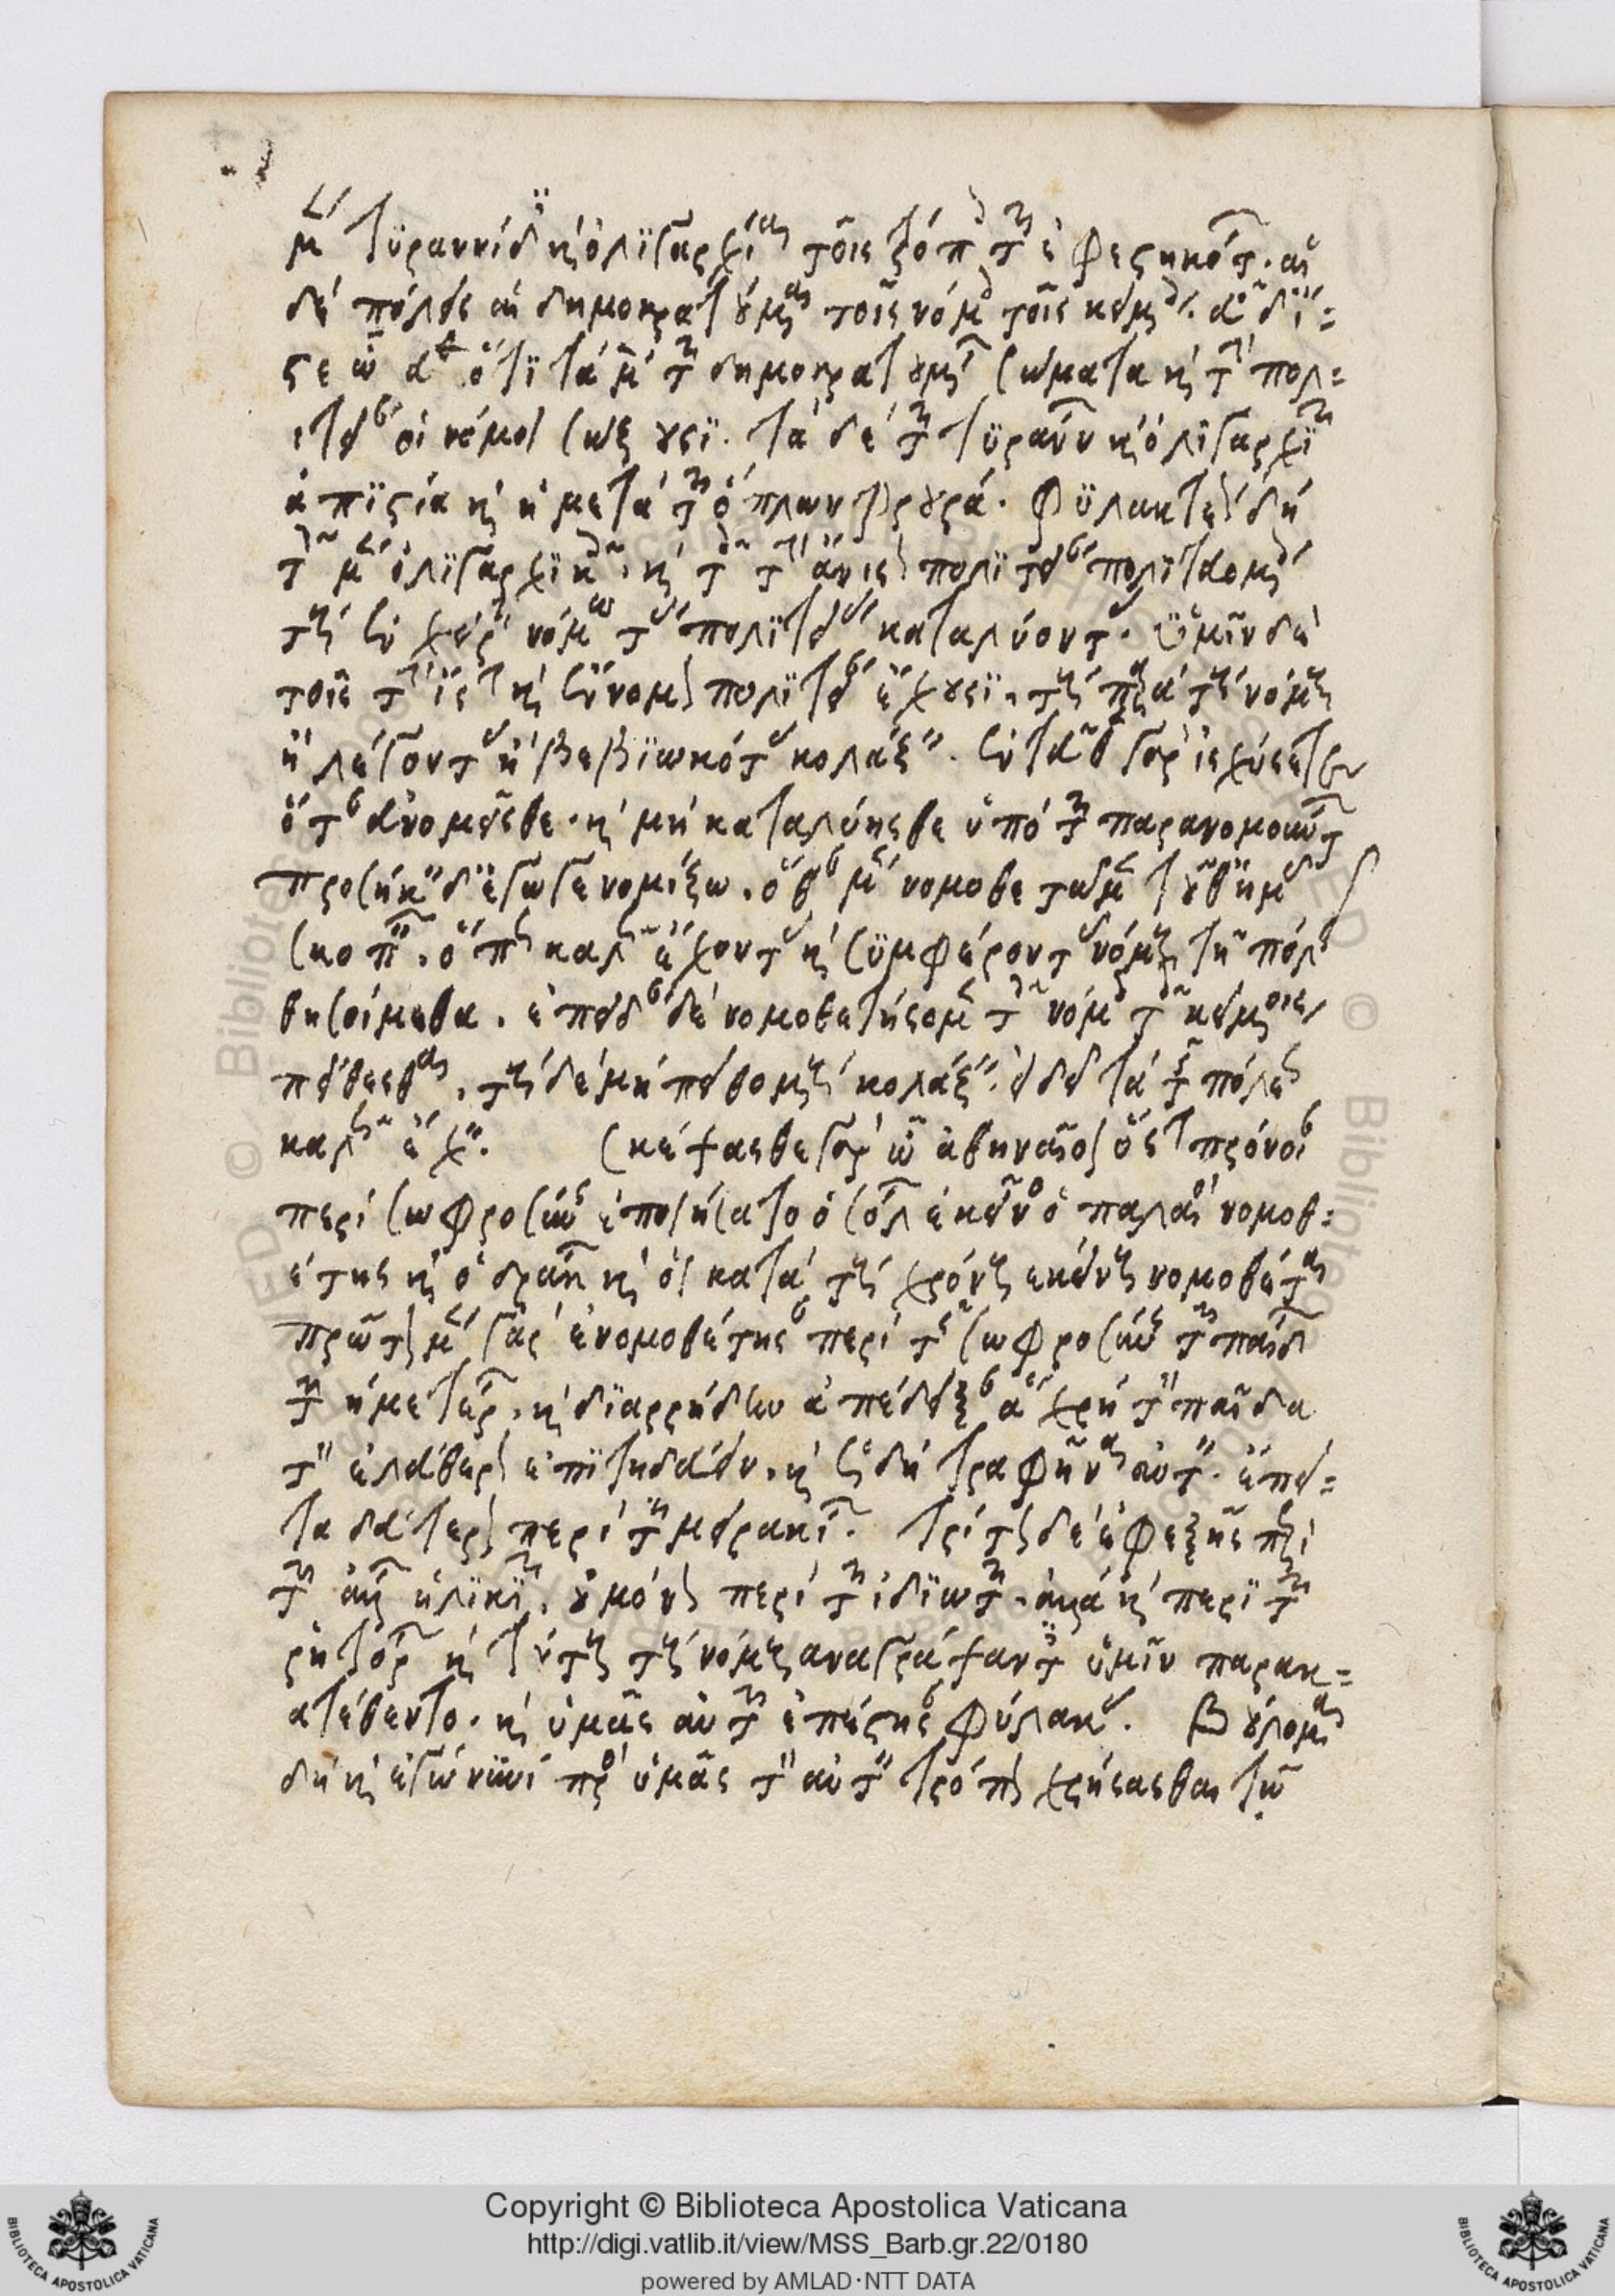 μὲν τυραννίδες καὶ ὀλιγαρχίαι τοῖς τρόποις τῶν ἐφεστηκότων. αἱ
δὲ πόλεις αἱ δημοκρατούμεναι τοῖς νόμοις τοῖς κειμένοις. εὖ δ' ἴ-
στε ὦ ἀθηναῖοι ὅτι τὰ μὲν τῶν δημοκρατουμένων σώματα καὶ τὴν πολ-
ιτείαν οἱ νόμοι σώζουσι. τὰ δὲ τῶν τυράννων καὶ ὀλιγαρχικῶν
ἀπιστία καὶ ἡ μετὰ τῶν ὅπλων φρουρά. φυλακτέον δὴ
τοῖς μὲν ὀλιγαρχικοῖς. καὶ τοῖς τὴν ἄνισον πολιτείαν πολιτευομένοις
τοὺς ἐν χειρῶν νόμω τὰς πολιτείας καταλύοντας. ὑμῖν δὲ
τοῖς τὴν ἴσην καὶ ἔννομον πολιτείαν ἔχουσι. τοὺς παρὰ τοὺς νόμους
ἢ λέγοντας ἢ βεβιωκότας κολάζειν. ἐνταῦθα γὰρ ἰσχύσετε
ὅταν εὐνομῆσθε. καὶ μὴ καταλύησθε ὑπὸ τῶν παρανομούντων
προσήκειν δ' ἔγωγε νομίζω. ὅταν μὲν νομοθετῶμεν τοῦθ' ἡμᾶς
σκοπεῖν. ὅπως καλῶς ἔχοντας καὶ συμφέροντας νόμους τῇ πόλει
θησόμεθα. ἐπειδὰν δὲ νομοθετήσομεν τοῖς νόμοις τοῖς κειμένοις
πείθεσθαι. τοὺς δὲ μὴ πειθομένους κολάζειν. εἰ δεῖ τὰ τῆς πόλεως
καλῶς ἔχειν. σκέψασθε γὰρ ὦ ἀθηναῖοι ὅσην πρόνοιαν
περὶ σωφροσύνης ἐποιήσατο ὁ σόλων ἐκεῖνος ὁ παλαιὸς νομοθ-
έτης καὶ ὁ δράκων καὶ οἱ κατὰ τοὺς χρόνους ἐκείνους νομοθέται
πρῶτον μὲν γὰρ ἐνομοθέτησαν περὶ τῆς σωφροσύνης τῶν παίδων
τῶν ἡμετέρων. καὶ διαρρήδην ἀπέδειξαν ἃ χρὴ τὸν παῖδα
τὸν ἐλεύθερον ἐπιτηδεύειν. καὶ ὡς δεῖ τραφῆναι αὐτόν. ἔπει-
τα δεύτερον περὶ τῶν μειρακίων. τρίτον δὲ ἐφεξῆς περὶ
τῶν ἄλλων ἡλικιῶν. οὐ μόνον περὶ τῶν ἰδιωτῶν. ἀλλὰ καὶ περὶ τῶν
ῥητόρων καὶ τούτους τοὺς νόμους ἀναγράψαντες ὑμῖν παρακ-
ατέθεντο. καὶ ὑμᾶς αὐτῶν ἐπέστησαν φύλακας. βούλομαι
δὴ καὶ ἐγὼ νυνὶ πρὸς ὑμᾶς τὸν αὐτὸν τρόπον χρήσασθαι τῷ
Copyright © Biblioteca Apostolica Vaticana
http://digi.vatlib.it/view/MSS_Barb.gr.22/0180
powered by AMLAD·NTT DATA